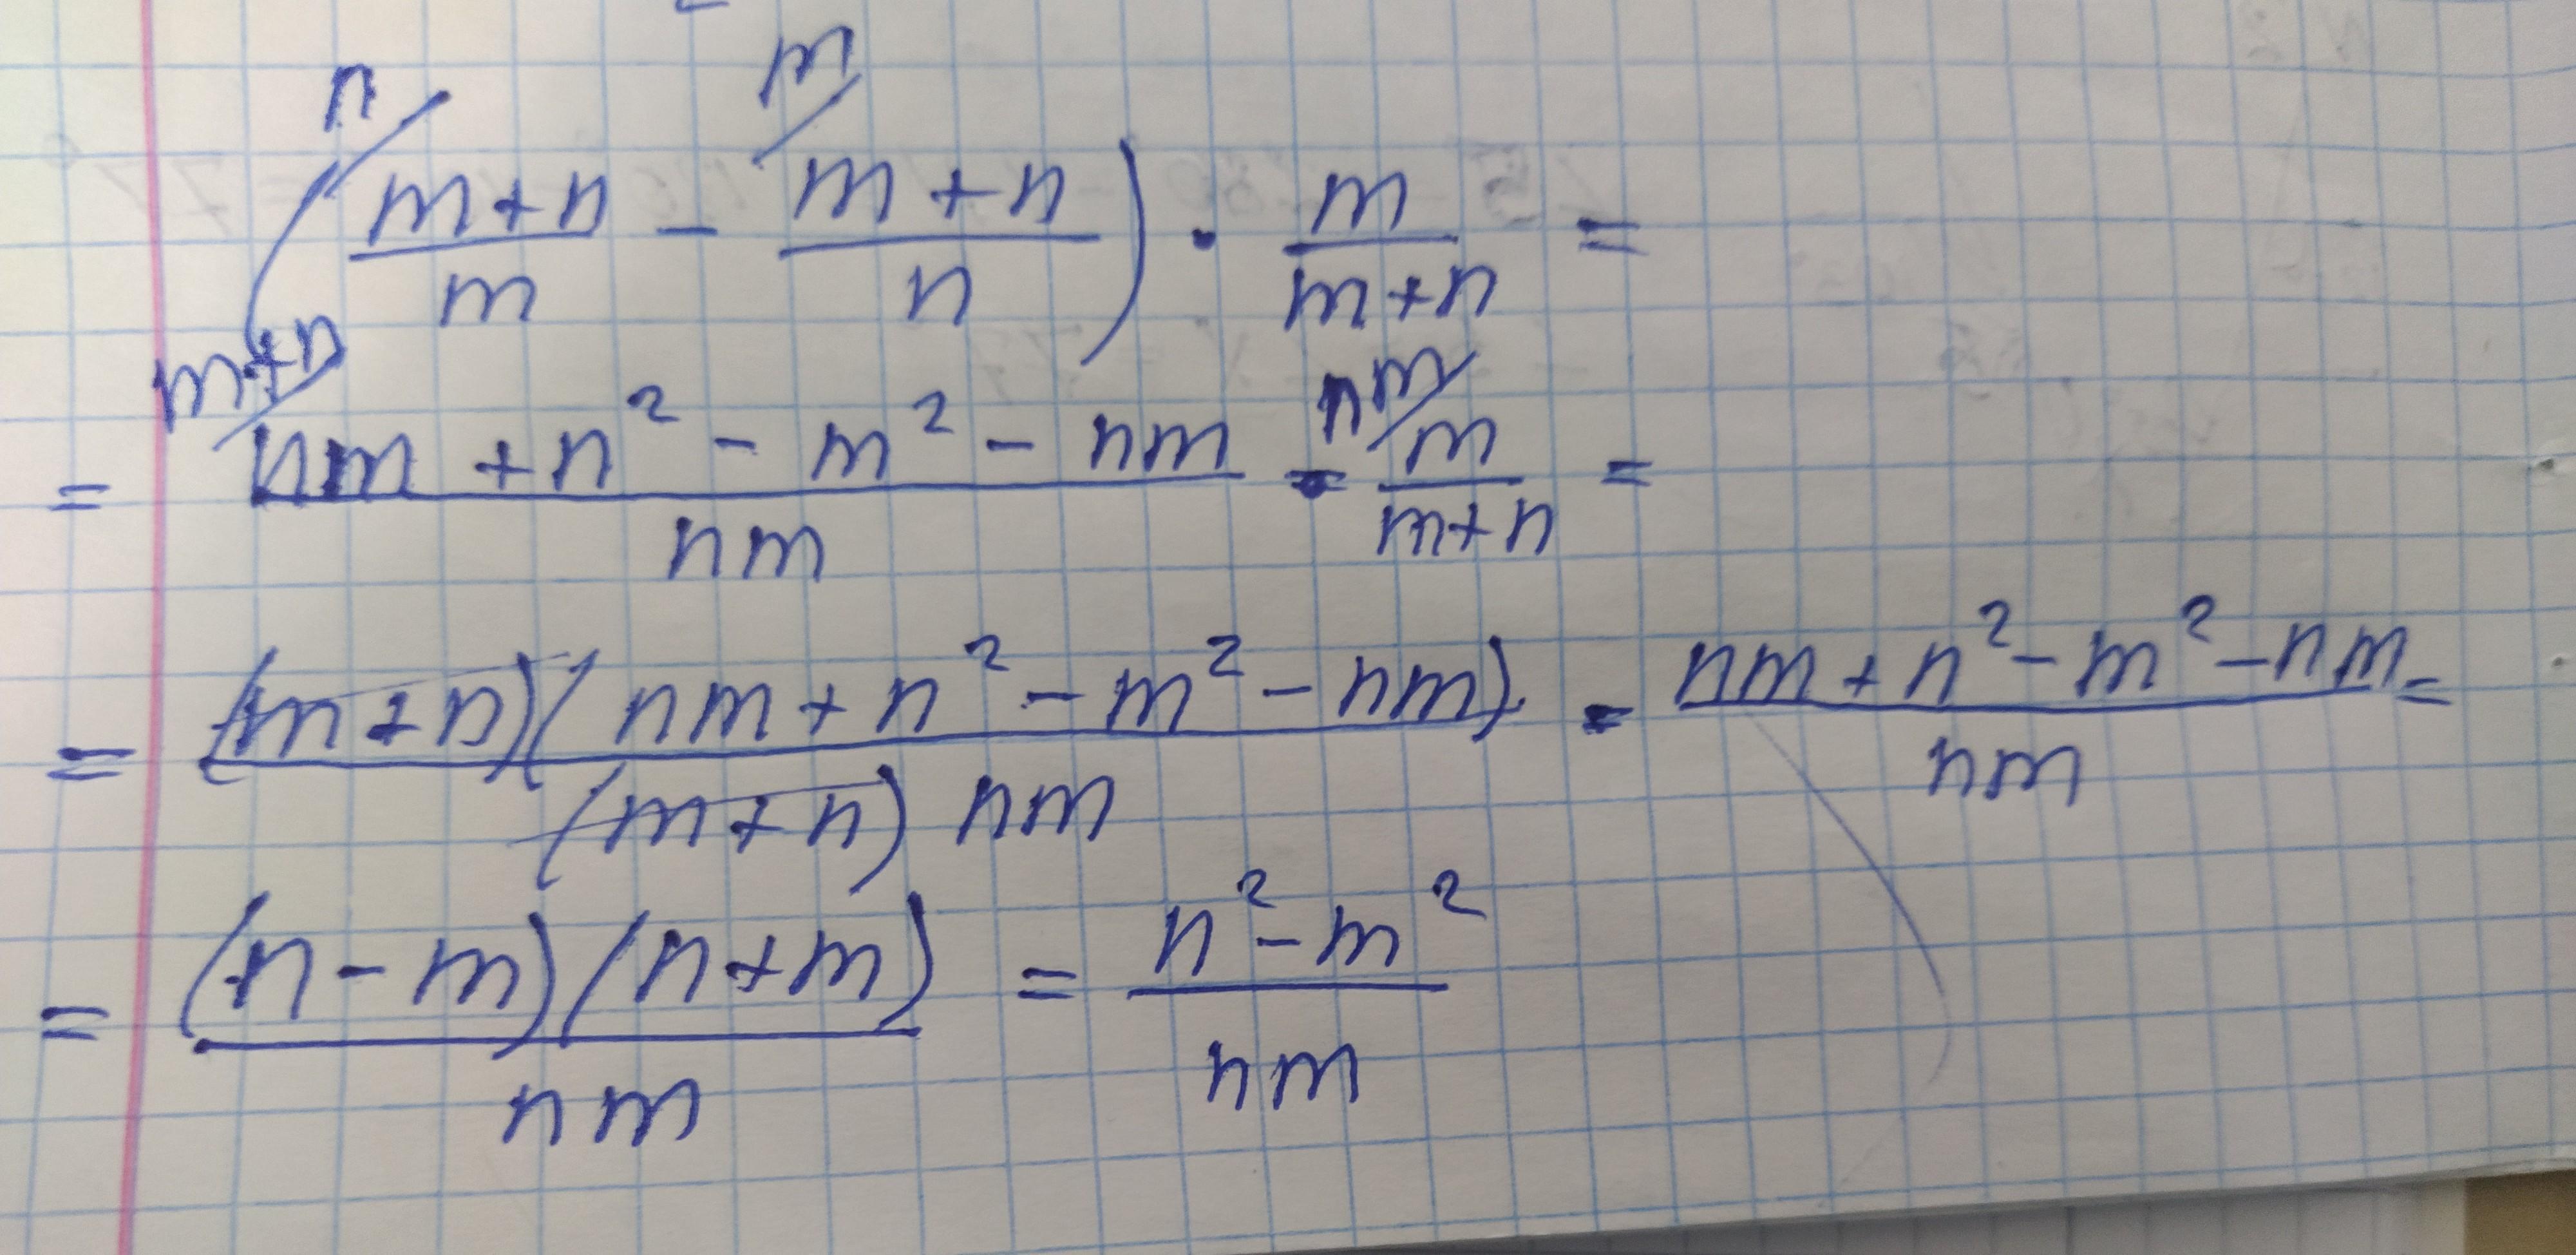 ( n/ (m+n)/m - m/ (m+n)/n ) · m/(m+n) =
= m+n/ (nm + n² - m² - nm)/nm · nm/ m/(m+n) =
= (m+n)(nm + n² - m² - nm)/((m+n) nm) = (nm + n² - m² - nm)/nm =
= (n-m)(n+m)/nm = (n² - m²)/nm